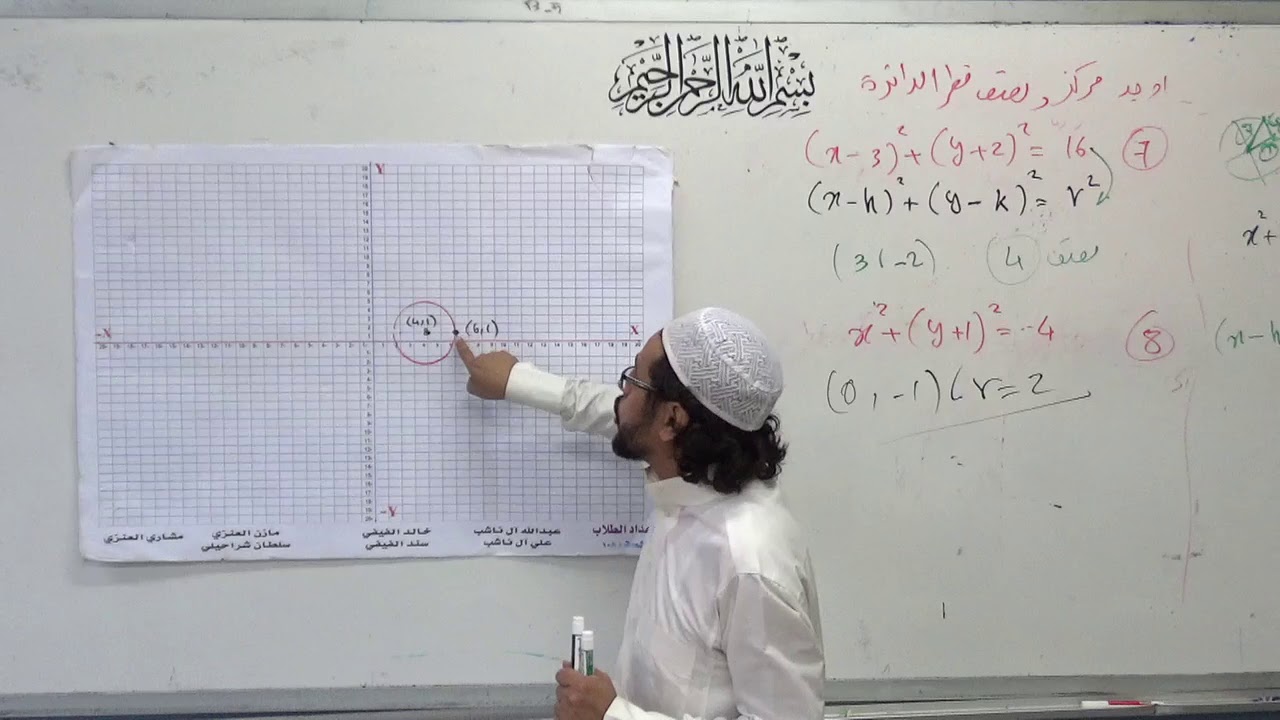 بسم الله الرحمن الرحيم
اوجد مركز ونصف قطر الدائرة
(x-3)² + (y+2)² = 16 ⑦
(x-h)² + (y-k)² = r²
(3, -2) ④ نصف
x² + (y+1)² = 4 ⑧
(0, -1) (r=2
x² +
Y
(4,1) (6,1)
-X X
-Y
عبدالله ال ناشب
خالد الفيفي
مازن العنزي
مشاري العنزي
علي ال ناشب
سند الفيفي
سلطان شراحيلي